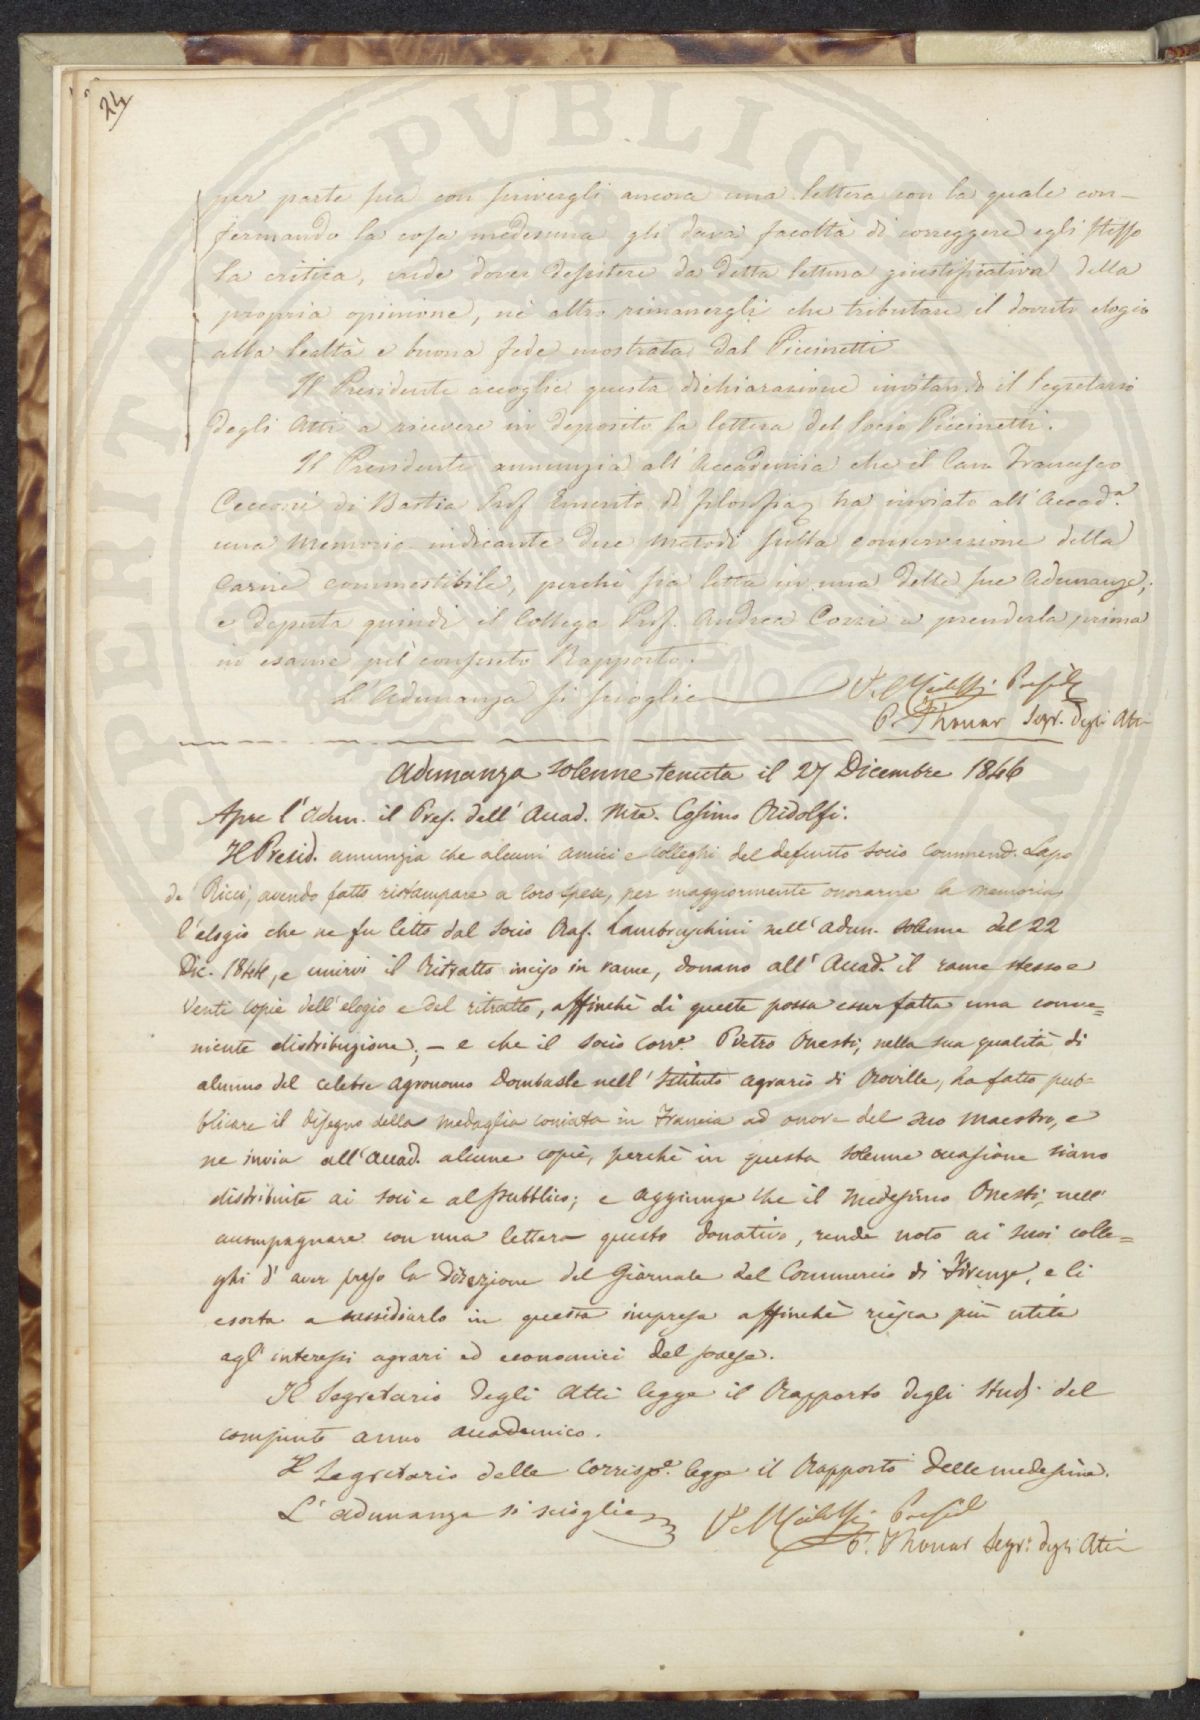 24
per parte sua con scrivergli ancora una lettera con la quale con-
fermando la cosa medesima gli dava facoltà di correggere egli stesso
la critica, crede dover desistere da detta lettura giustificativa della
propria opinione, nè altro rimanergli che tributare il dovuto elogio
alla lealtà e buona fede mostrata dal Piccinetti
Il Presidente accoglie questa dichiarazione invitando il Segretario
degli Atti a ricevere in deposito la lettera del Socio Piccinetti.
Il Presidente annunzia all'Accademia che il Cav. Francesco
Cecconi di Bastia Prof. Emerito di filosofia, ha inviato all'Accad.a
una Memoria indicante due metodi sulla conservazione della
Carne commestibile, perchè sia letta in una delle sue Adunanze;
e deputa quindi il Collega Prof. Andrea Cozzi a prenderla prima
in esame pel consueto Rapporto.
L'Adunanza si scioglie
V. Presid.
P. Thouar Segr. degli Atti
Adunanza solenne tenuta il 27 Dicembre 1846
Apre l'Adun. il Pres. dell'Accad. Cosimo Ridolfi.
Il Presid. annunzia che alcuni amici e colleghi del defunto socio Commend. Lapo
de' Ricci, avendo fatto ristampare a loro spese, per maggiormente onorarne la memoria,
l'elogio che ne fu letto dal socio Raf. Lambruschini nell'adun. solenne del 22
Dic. 1844, e unirvi il Ritratto inciso in rame, donano all'Accad. il rame stesso e
venti copie dell'elogio e del ritratto, affinchè di queste possa esser fatta una conve=
niente distribuzione; – e che il socio Corr.e Pietro Onesti, nella sua qualità di
alunno del celebre agronomo Dombasle nell'Istituto agrario di Roville, ha fatto pub=
blicare il disegno della medaglia coniata in Francia ad onore del suo maestro, e
ne invia all'Accad. alcune copie, perchè in questa solenne occasione siano
distribuite ai soci e al pubblico; e aggiunge che il medesimo Onesti, nell'
accompagnare con una lettera questo donativo, rende noto ai suoi colle=
ghi d'aver preso la direzione del Giornale del Commercio di Firenze, e li
esorta a sussidiarlo in questa impresa affinchè riesca più utile
agl'interessi agrari ed economici del paese.
Il Segretario degli Atti legge il Rapporto degli studj del
compiuto anno accademico.
Il Segretario delle Corrisp.e legge il Rapporto delle medesime.
L'adunanza si scioglie
V. Presid.
P. Thouar Segr. degli Atti
SPERITAT PVBLICA